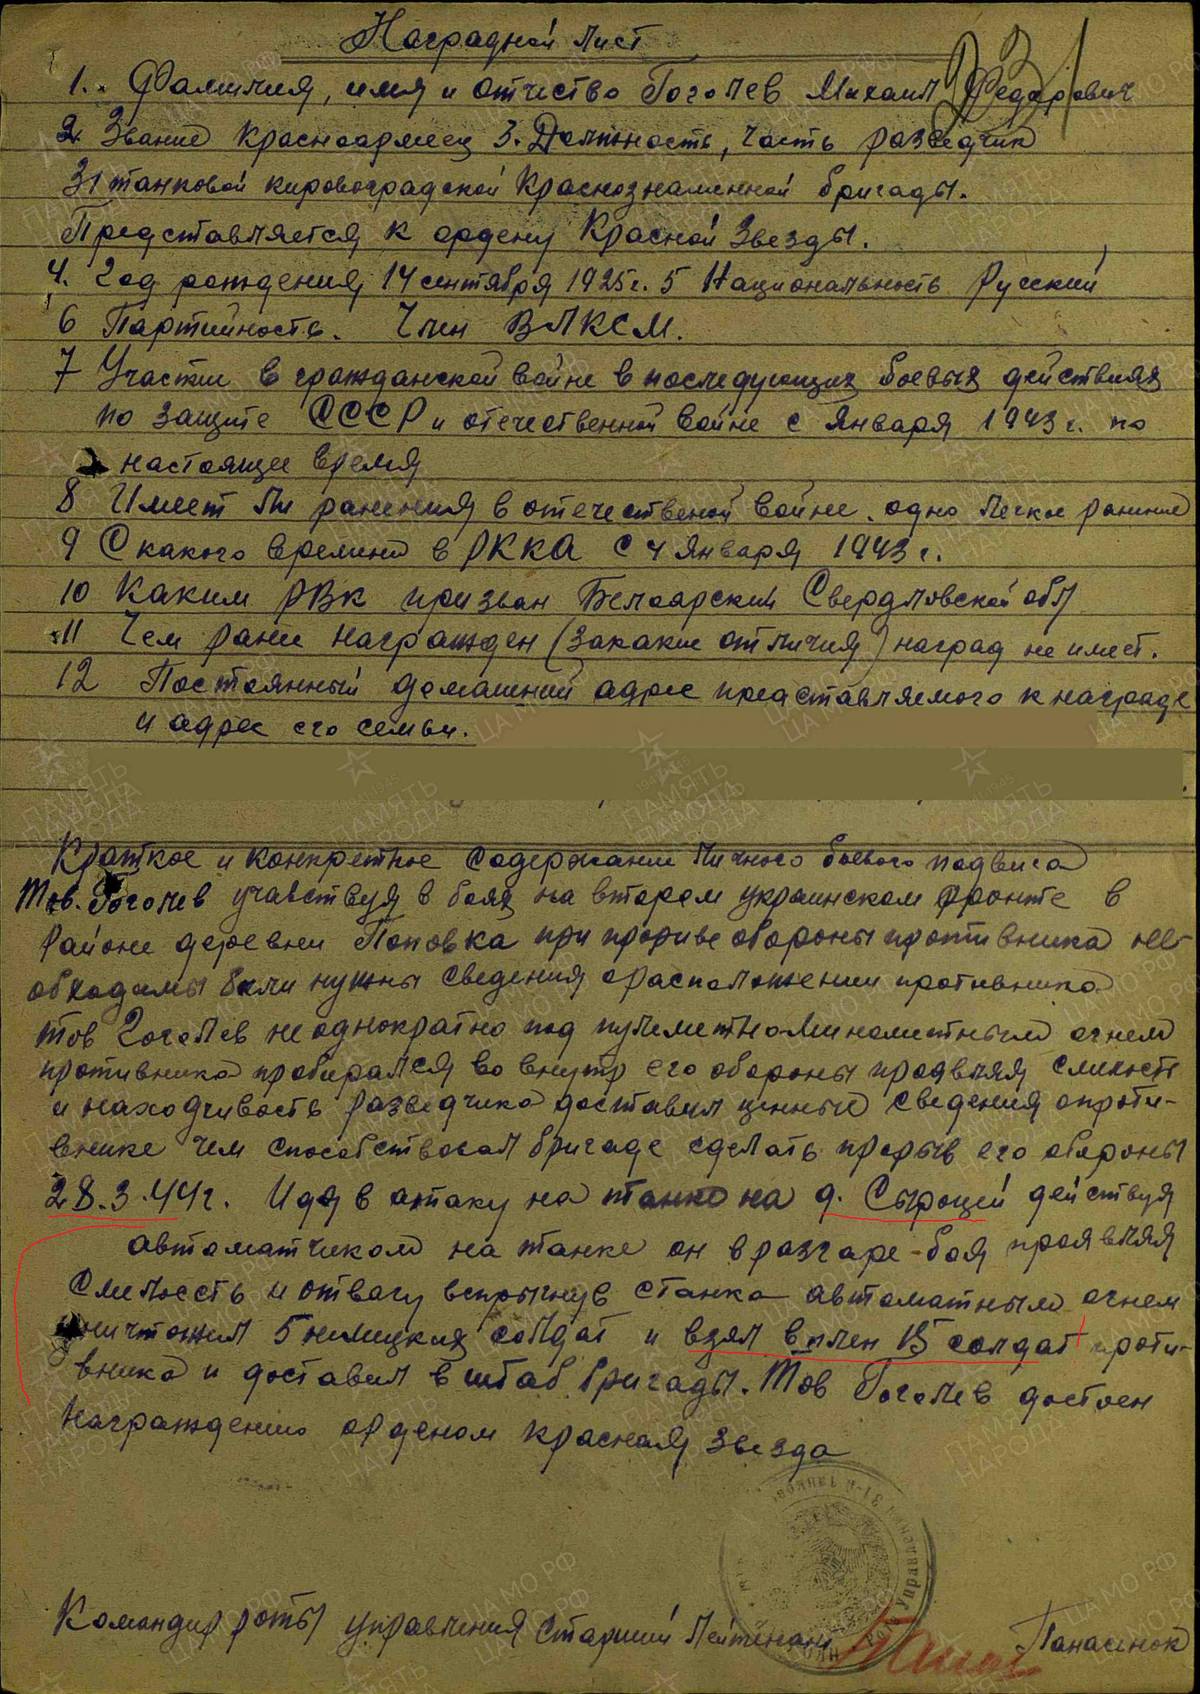 Наградной лист
1. Фамилия, имя и отчество Гоголев Михаил Федорович
2. Звание Красноармеец 3. Должность, часть разведчик
31 танковой кировоградской Краснознаменной бригады.
Представляется к ордену Красной Звезды.
4. Год рождения 14 сентября 1925г. 5 Национальность Русский
6 Партийность. Член ВЛКСМ.
7 Участие в гражданской войне в последующих боевых действиях
по защите СССР и отечественной войне с Января 1943г. по
настоящее время
8 Имеет ли ранения в отечественой войне. одно легкое ранение
9 С какого времени в РККА С 4 Января 1943г.
10 Каким РВК призван Белоярский Свердловской обл
11 Чем ранее награжден (за какие отличия) наград не имеет.
12 Постоянный домашний адрес представляемого к награде
и адрес его семьи.
Краткое и конкретное содержание личного боевого подвига
Тов. Гоголев учавствуя в боях на втором украинском фронте в
районе деревни Поповка при прориве обороны противника не-
обходимы были нужны сведения о расположении противника
тов Гоголев неоднократно под пулеметно-минометным огнем
противника пробирался во внутр его обороны проявляя смелость
и находчивость разведчика доставил ценные сведения о проти-
внике чем способствовал бригаде сделать прорыв его обороны
28.3.44г. Идя в атаку на танке на д. Сырощей действуя
автоматчиком на танке он в разгаре боя проявляя
смелость и отвагу вспрыгнув с танка автоматным огнем
уничтожил 5 немецких солдат и взял в плен 15 солдат проти-
вника и доставил в штаб бригады. Тов Гоголев достоен
награждению орденом красная звезда
Командир роты управления старший лейтенант Панасенок